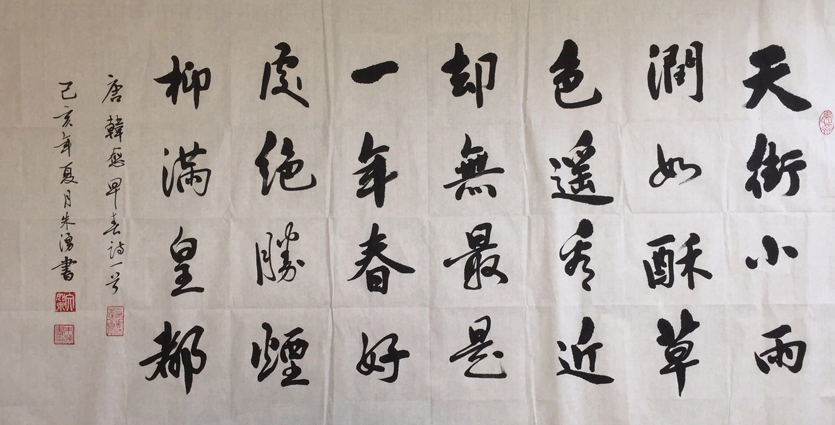 天街小雨
潤如酥草
色遥看近
却無最是
一年春好
處絶勝煙
柳滿皇都
唐韓愈早春詩一首
己亥年夏月朱湧書